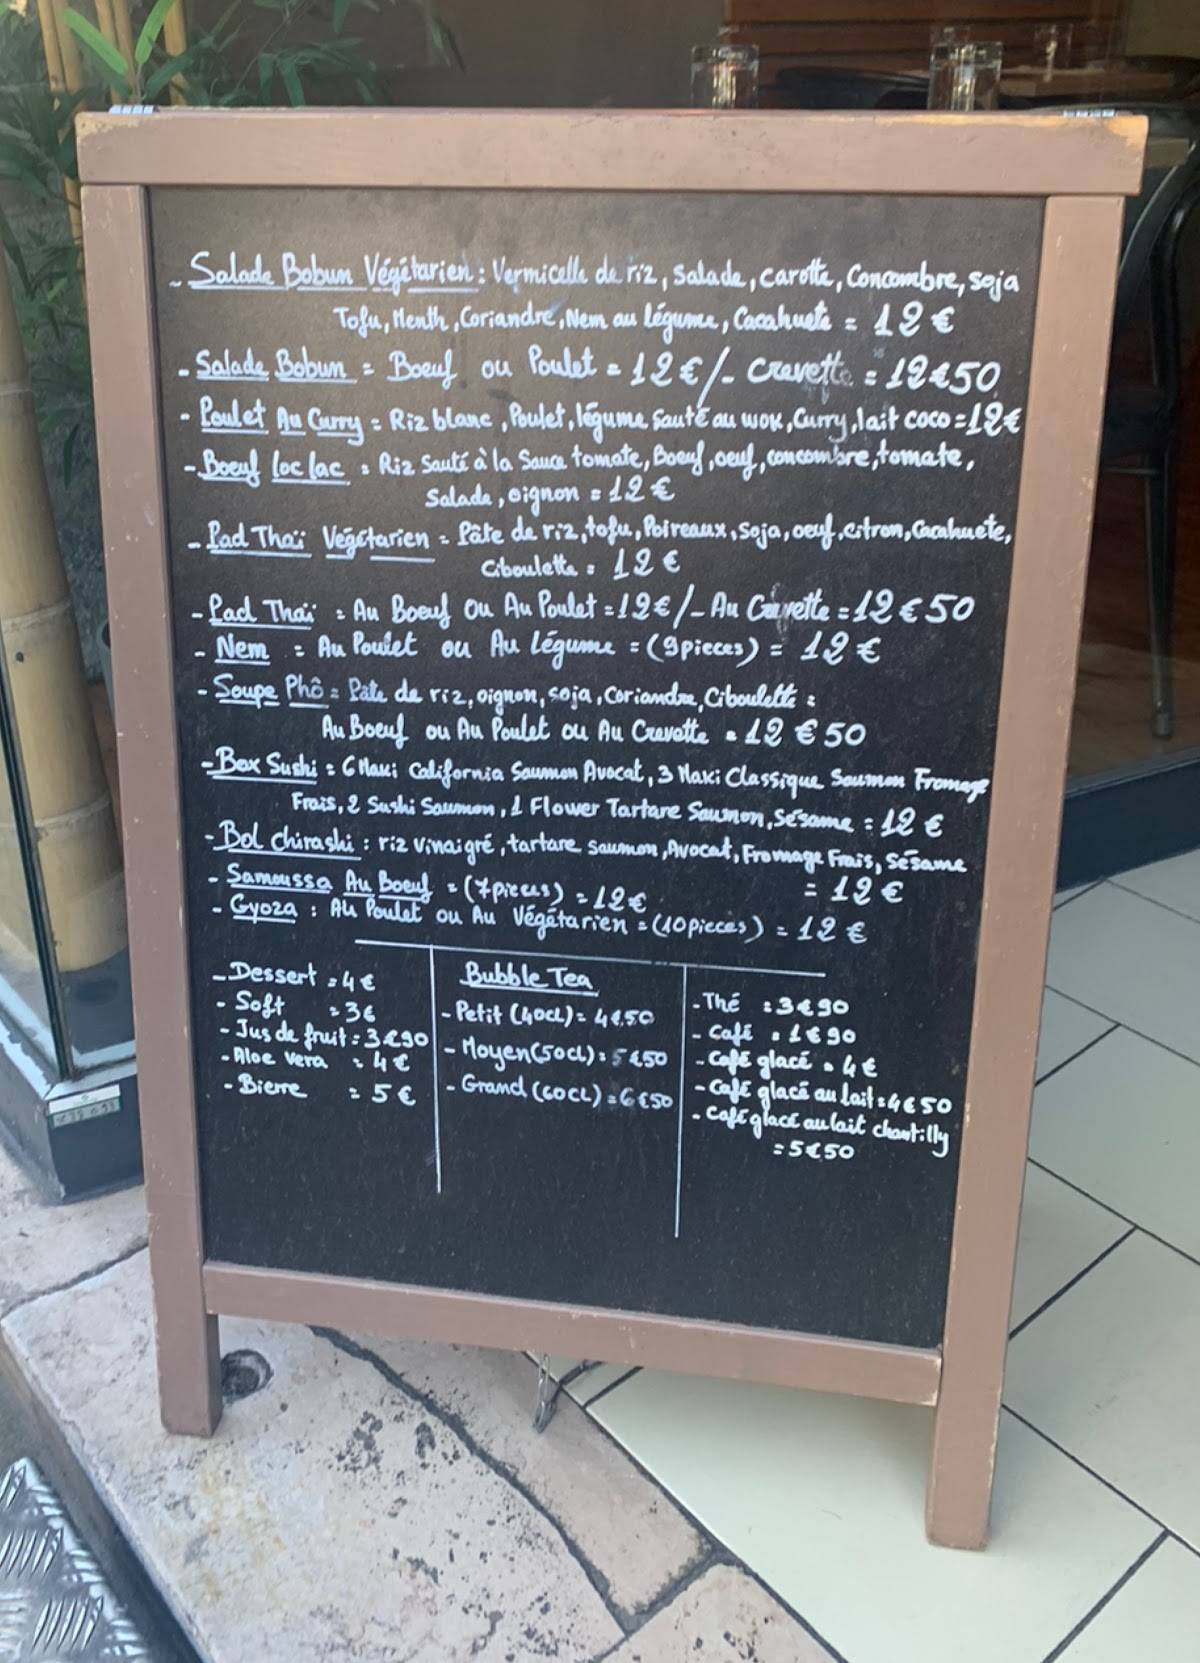 - Salade Bobun Végétarien : Vermicelle de riz, Salade, carotte, Concombre, Soja
Tofu, Menth, Coriandre, Nem au légume, Cacahuete = 12 €
- Salade Bobun = Boeuf ou Poulet = 12 € /- Crevette = 12€50
- Poulet Au Curry = Riz blanc, Poulet, légume Sauté au wok, Curry, lait coco = 12€
- Boeuf loc lac = Riz Sauté à la Sauce tomate, Boeuf, oeuf, concombre, tomate,
Salade, oignon = 12 €
- Pad Thaï Végétarien = Pâte de riz, tofu, Poireaux, Soja, oeuf, citron, Cacahuete,
Ciboulette = 12 €
- Pad Thaï = Au Boeuf ou Au Poulet = 12€ /- Au Crevette = 12 € 50
- Nem = Au Poulet ou Au légume = (9 pieces) = 12 €
- Soupe Phô = Pâte de riz, oignon, soja, Coriandre, Ciboulette =
Au Boeuf ou Au Poulet ou Au Crevette = 12 € 50
- Box Sushi = 6 Maki California Saumon Avocat, 3 Maki Classique Saumon Fromage
Frais, 2 Sushi Saumon, 1 Flower Tartare Saumon, Sésame = 12 €
- Bol chirashi : riz vinaigré, tartare saumon, Avocat, Fromage Frais, Sésame
= 12 €
- Samoussa Au Boeuf = (7 pieces) = 12€
- Gyoza : Au Poulet ou Au Végétarien = (10 pieces) = 12 €
- Dessert = 4 €
- Soft = 3€
- Jus de fruit = 3€90
- Aloe vera = 4 €
- Bierre = 5 €
Bubble Tea
- Petit (40cl) = 4€50
- Moyen (50cl) = 5€50
- Grand (60cl) = 6€50
- Thé = 3€90
- Café = 1€90
- Café glacé = 4€
- Café glacé au lait = 4€50
- Café glacé au lait chantilly
= 5€50